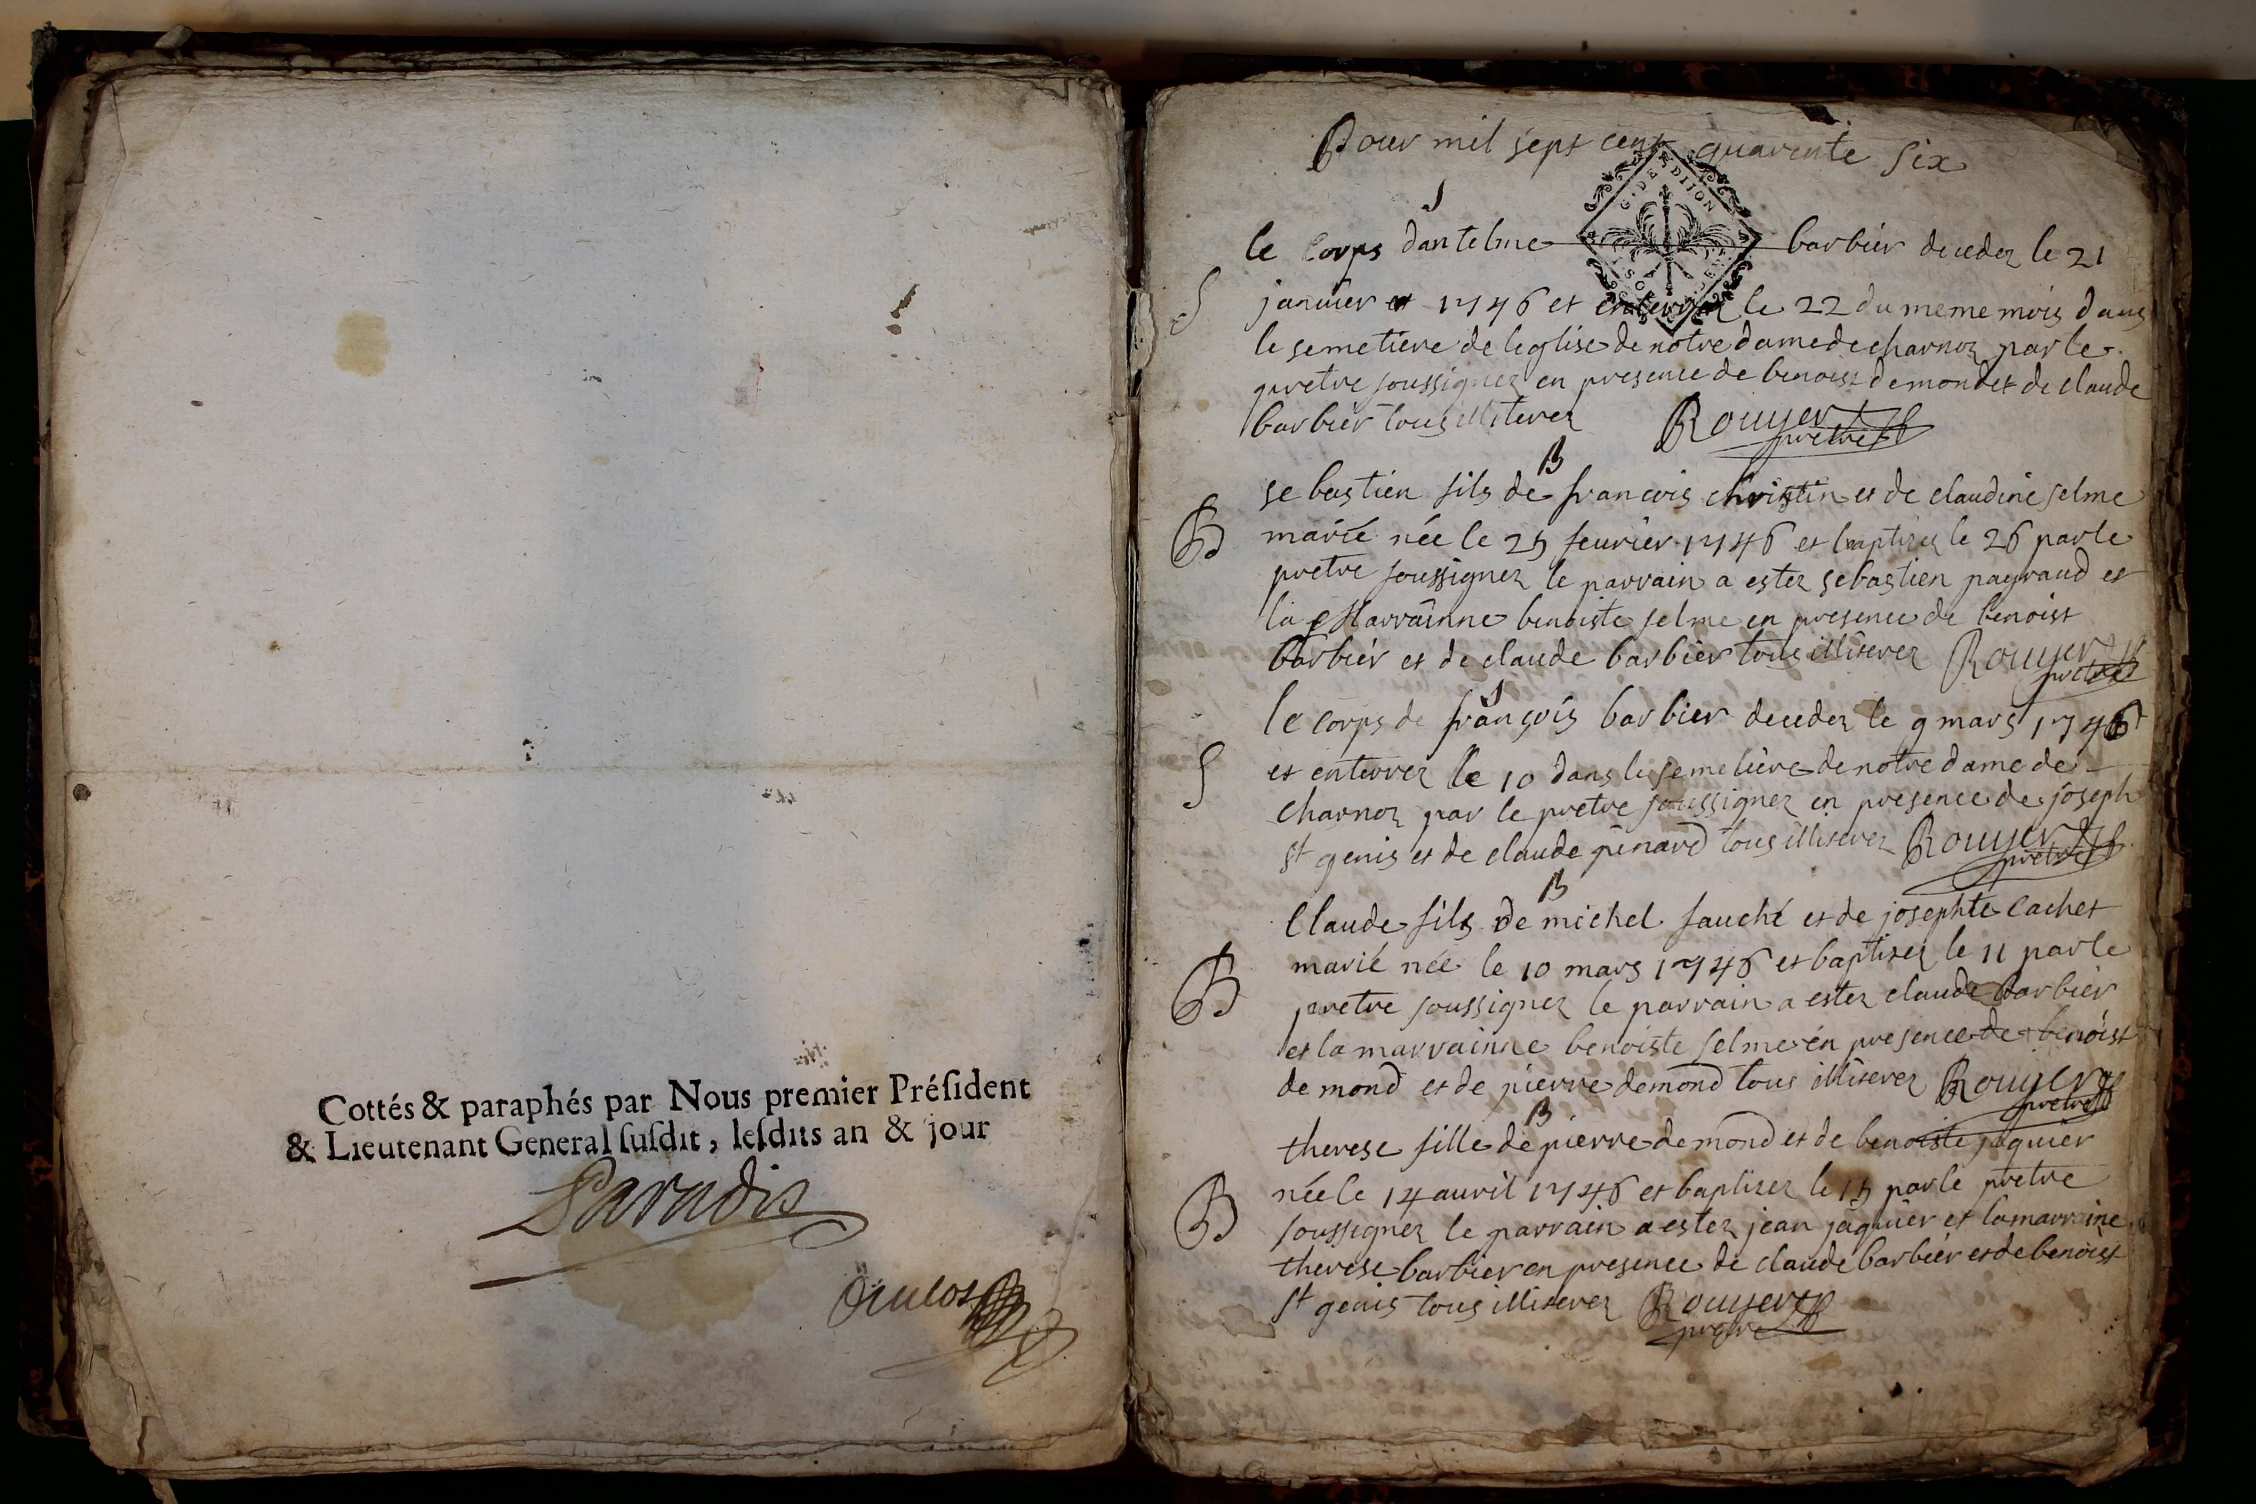 Cottés & paraphés par Nous premier Préſident
& Lieutenant General ſuſdit, leſdits an & jour
Paradis
Pour mil sept cent quarente six
G. DE DIJON
S
le corps dantelme barbier decedez le 21
S
janvier et 1746 et enterrez le 22 du meme mois dans
le semetiere de leglise de notre dame de charnoz par le
pretre soussignez en presence de benoist demond et de claude
barbier tous illiterez Rouyer
pretre
B
sebastien fils de francois christin et de claudine selme
B
marié née le 25 feurier 1746 et baptisez le 26 par le
pretre soussignez le parrain a estez sebastien payraud et
la Marrainne benoiste selme en presence de benoist
barbier et de claude barbier tous illiterez Rouyer
pretre
S
le corps de françois barbier decedez le 9 mars 1746
S
et enterrez le 10 dans le semetiere de notre dame de
charnoz par le pretre soussignez en presence de joseph
st genis et de claude pinard tous illiterez Rouyer
pretre
B
Claude fils de michel fauché et de josephte cachet
B
marié née le 10 mars 1746 et baptisez le 11 par le
pretre soussignez le parrain a estez claude barbier
et la marrainne benoiste selme en presence de benoist
demond et de pierre demond tous illiterez Rouyer
pretre
B
therese fille de pierre demond et de benoiste jaquier
B
née le 14 auril 1746 et baptisez le 15 par le pretre
soussignez le parrain a estez jean jaquier et la marraine
therese barbier en presence de claude barbier et de benoist
st genis tous illiterez Rouyer
pretre